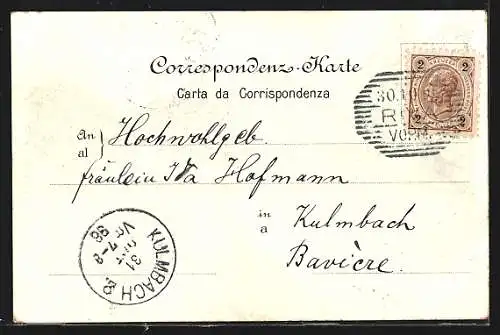 Correspondenz-Karte
Carta da Corrispondenza
2 2
30.10
VORM
2 2
An
al
Hochwohlgeb.
fräulein Ida Hofmann
in
a
Kulmbach
Bavière.
KULMBACH
31
OCT
7-8
98